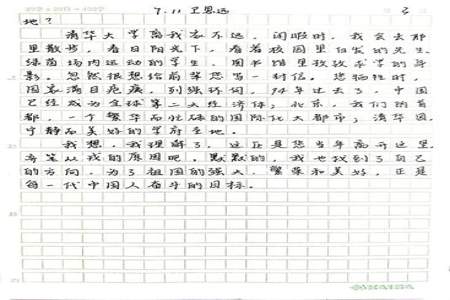 7.11 卫思远
3
地？
清华大学离我家不远，闲暇时，我会去那
里散步，看日阳光下，看着校园里白发的先生，
绿茵场内运动的学生，图书馆里孜孜求学的身
影。忽然很想给前辈您写一封信。您牺牲时，
国家满目疮痍，列强环伺，94年过去了，中国
已经成为全球第二大经济体；北京，我们的首
都，一个繁华而忙碌的国际化大都市；清华园，
宁静而美好的学府圣地。
我想，我理解了，这正是您当年离开这里，
弃笔从戎的原因吧。默默的，我也找到了自己
的方向，为了祖国的强大，繁荣和美好，正是
每一代中国人奋斗的目标。